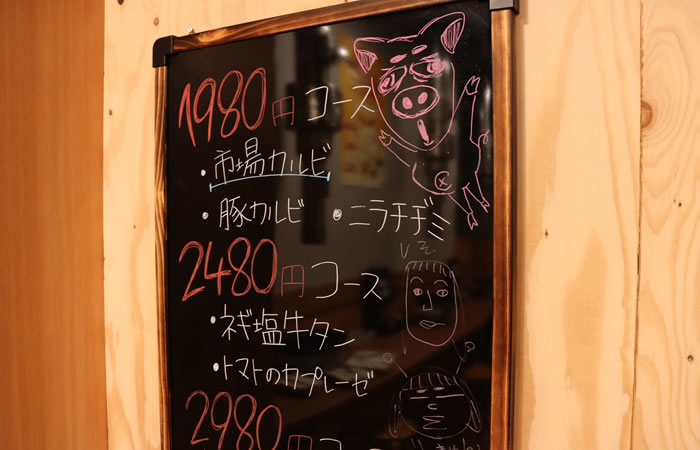 1980円 コース
・市場カルビ
・豚カルビ ・ニラチヂミ
2480円 コース
・ネギ塩牛タン
・トマトのカプレーゼ
2980円 コース